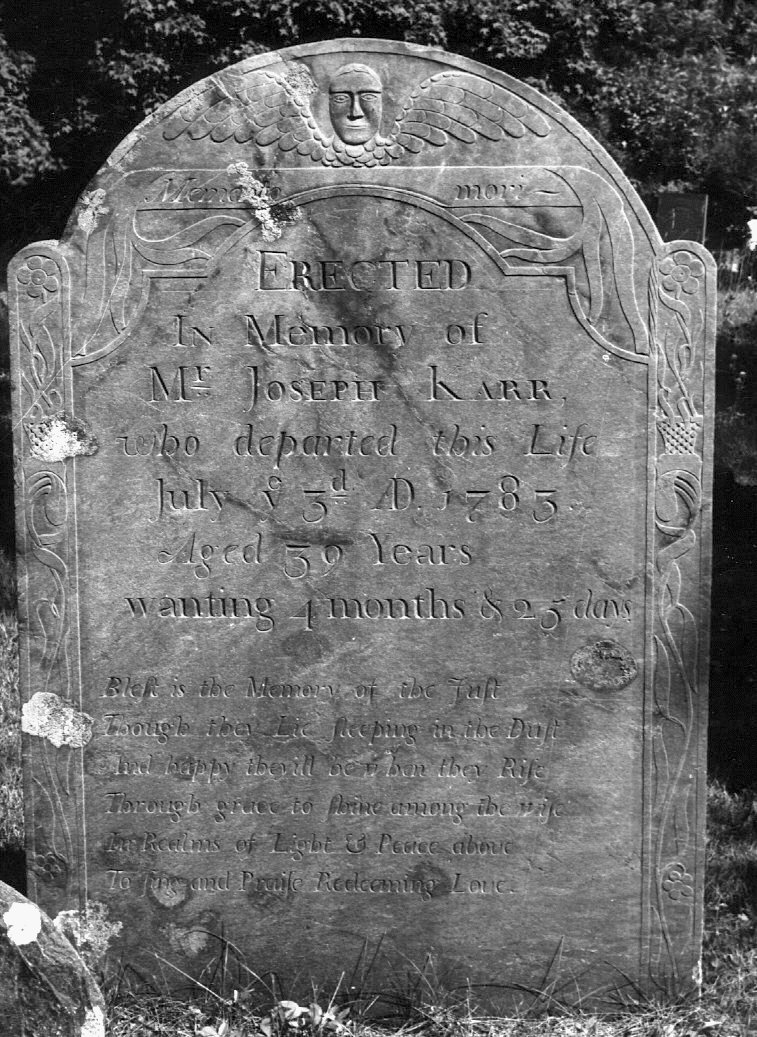 Memento mori
ERECTED
IN MEMORY OF
Mr. JOSEPH KARR,
who departed this Life
July ye 3d. AD. 1783.
Aged 39 Years
wanting 4 months & 25 days.
Bleſt is the Memory of the Juſt
Though they Lie ſleeping in the Duſt
And happy theyill be when they Riſe
Through grace to ſhine among the wiſe
In Realms of Light & Peace above
To ſing and Praiſe Redeeming Love.